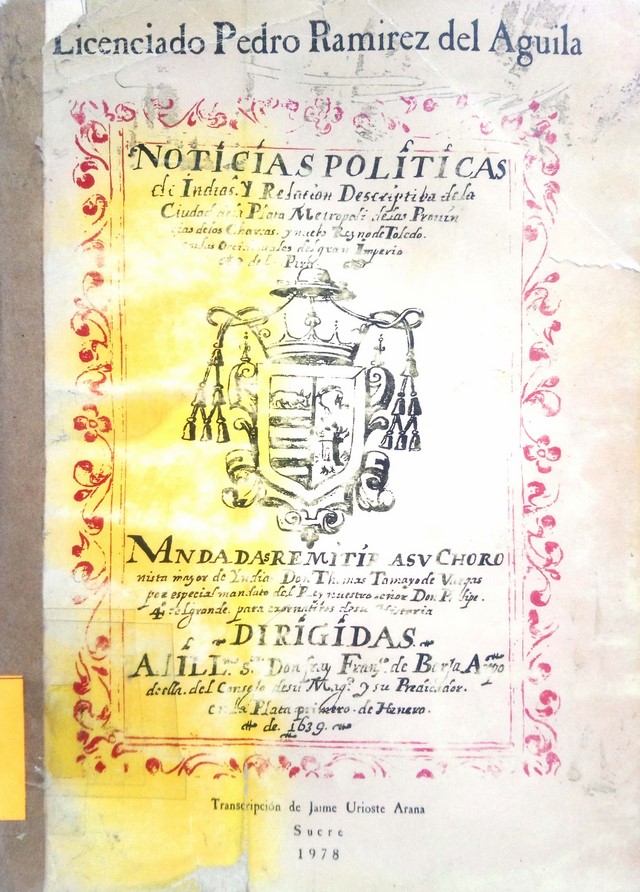 Licenciado Pedro Ramirez del Aguila
NOTIÇIAS POLITICAS
de Indias. Y Relation Descriptiba de la
Ciudad de la Plata Metropoli de las Provin
çias de los Charcas. y nuebo Reyno de Toledo.
en las Occidentales del gran Imperio
del Piru
MNDADAS REMITIR A SV CHORO
nista mayor de Yndias Don Thomas Tamayo de Vargas
por especial mandato del Rey nuestro señor Don P. lipe.
4º el grande. para exornatibos de su Historia
DIRIGIDAS.
A. ILLᵐᵒ Sʳ Don fray Franᶜᵒ de Borja Arçpo
de ella. del Consejo de su Magᵈ y su Predicador.
en la Plata primero. de Henero.
de 1639.
Transcripción de Jaime Urioste Arana
Sucre
1978